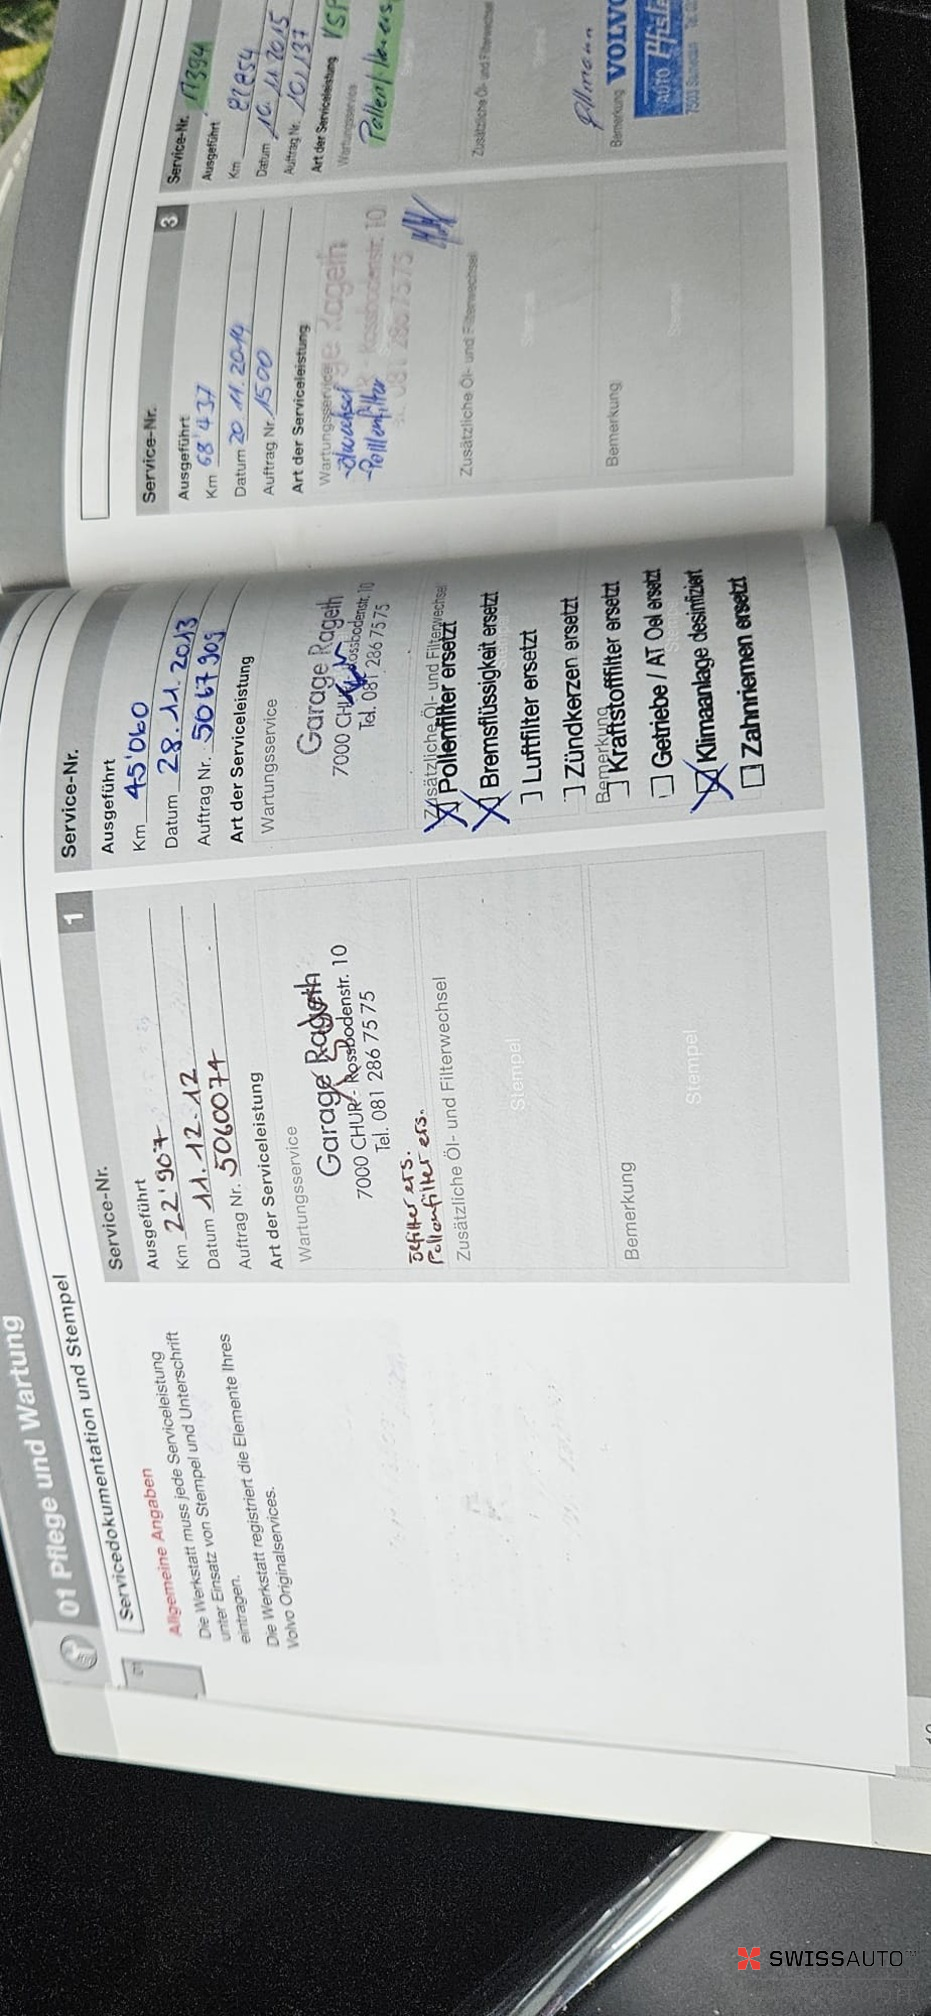 01 Pflege und Wartung
Servicedokumentation und Stempel
01
Allgemeine Angaben
Die Werkstatt muss jede Serviceleistung
unter Einsatz von Stempel und Unterschrift
eintragen.
Die Werkstatt registriert die Elemente Ihres
Volvo Originalservices.
Service-Nr. 1
Ausgeführt
Km 22'907
Datum 11.12.12
Auftrag Nr. 5060074
Art der Serviceleistung
Wartungsservice
Garage Rageth
7000 CHUR - Rossbodenstr. 10
Tel. 081 286 75 75
Ölfilter ers.
Pollenfilter ers.
Zusätzliche Öl- und Filterwechsel
Stempel
Bemerkung
Stempel
Service-Nr.
Ausgeführt
Km 45'060
Datum 28.11.2013
Auftrag Nr. 5067909
Art der Serviceleistung
Wartungsservice
Garage Rageth
7000 CHUR Rossbodenstr. 10
Tel. 081 286 75 75
Zusätzliche Öl- und Filterwechsel
Pollenfilter ersetzt
Bremsflüssigkeit ersetzt
Luftfilter ersetzt
Zündkerzen ersetzt
Bemerkung
Kraftstofffilter ersetzt
Getriebe / AT Oel ersetzt
Klimaanlage desinfiziert
Zahnriemen ersetzt
Service-Nr. 3
Ausgeführt
Km 68'437
Datum 20.11.2014
Auftrag Nr. 1500
Art der Serviceleistung
Wartungsservice
Garage Rageth
-Ölwechsel
-Pollenfilter
Rossbodenstr. 10
081 286 75 75
Zusätzliche Öl- und Filterwechsel
Stempel
Bemerkung
Stempel
Service-Nr.
Ausgeführt
Km
Datum 10.11.2015
Auftrag Nr. 101137
Art der Serviceleistung
Wartungsservice
Zusätzliche Öl- und Filterwechsel
Bemerkung
VOLVO
AUTO Pfist
SWISSAUTO